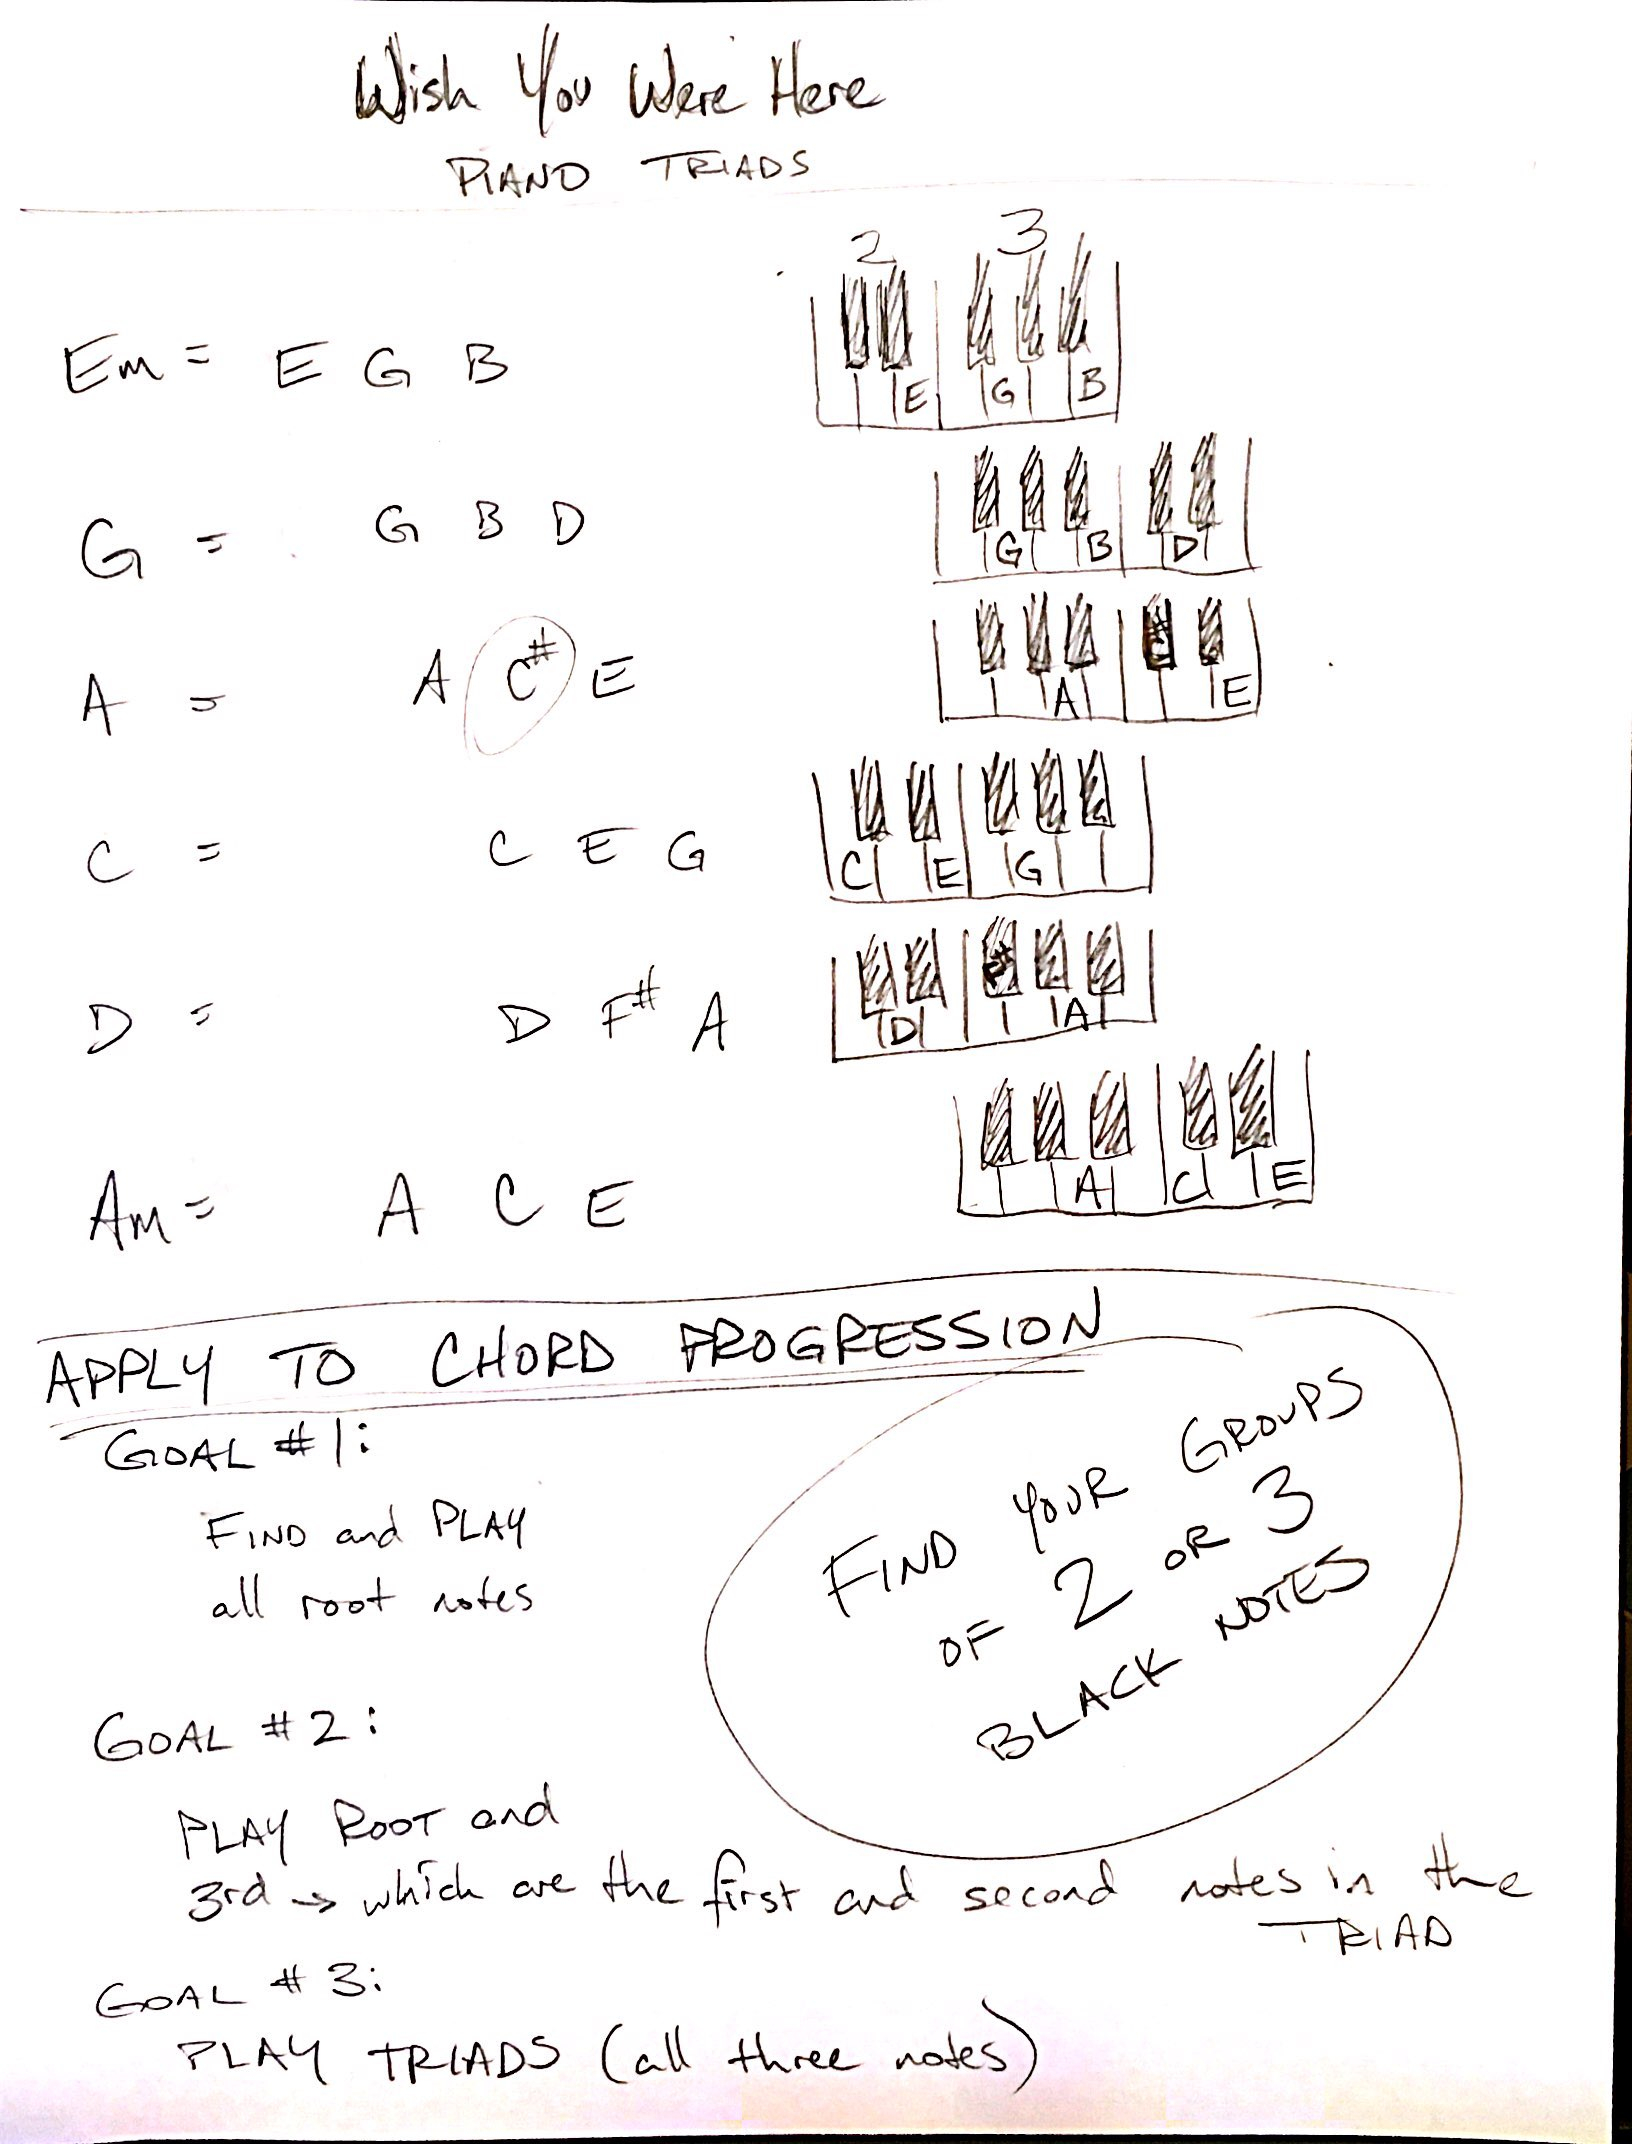 Wish You Were Here
PIANO TRIADS
2 3
Em = E G B
E G B
G = G B D
G B D
A = A C# E
A C# E
C = C E G
C E G
D = D F# A
D F# A
Am = A C E
A C E
APPLY TO CHORD PROGRESSION
GOAL #1:
FIND and PLAY
all root notes
FIND YOUR GROUPS
OF 2 OR 3
BLACK NOTES
GOAL #2:
PLAY ROOT and
3rd → which are the first and second notes in the
TRIAD
GOAL #3:
PLAY TRIADS (all three notes)